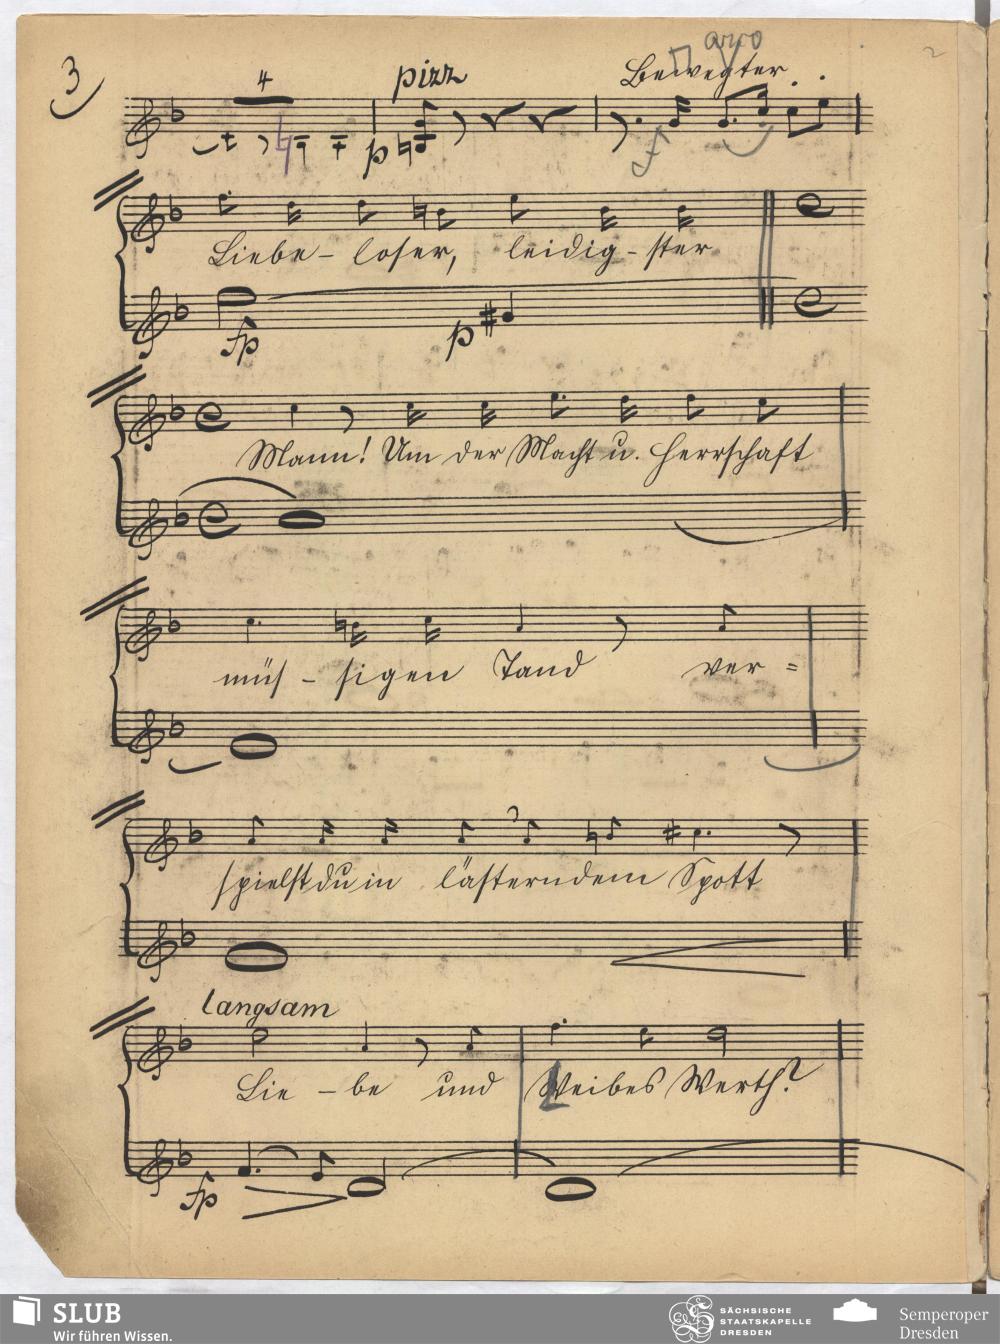 3
arco
2
4
pizz
Bewegter.
p
f
Liebe- loser, leidig- ster
fp
p
Mann! Um der Macht u. Herrschaft
müs- sigen Tand ver=
spielst du in lästerndem Spott
langsam
Lie- be und Weibes Werth?
fp
SLUB
Wir führen Wissen.
SÄCHSISCHE
STAATSKAPELLE
DRESDEN
Semperoper
Dresden